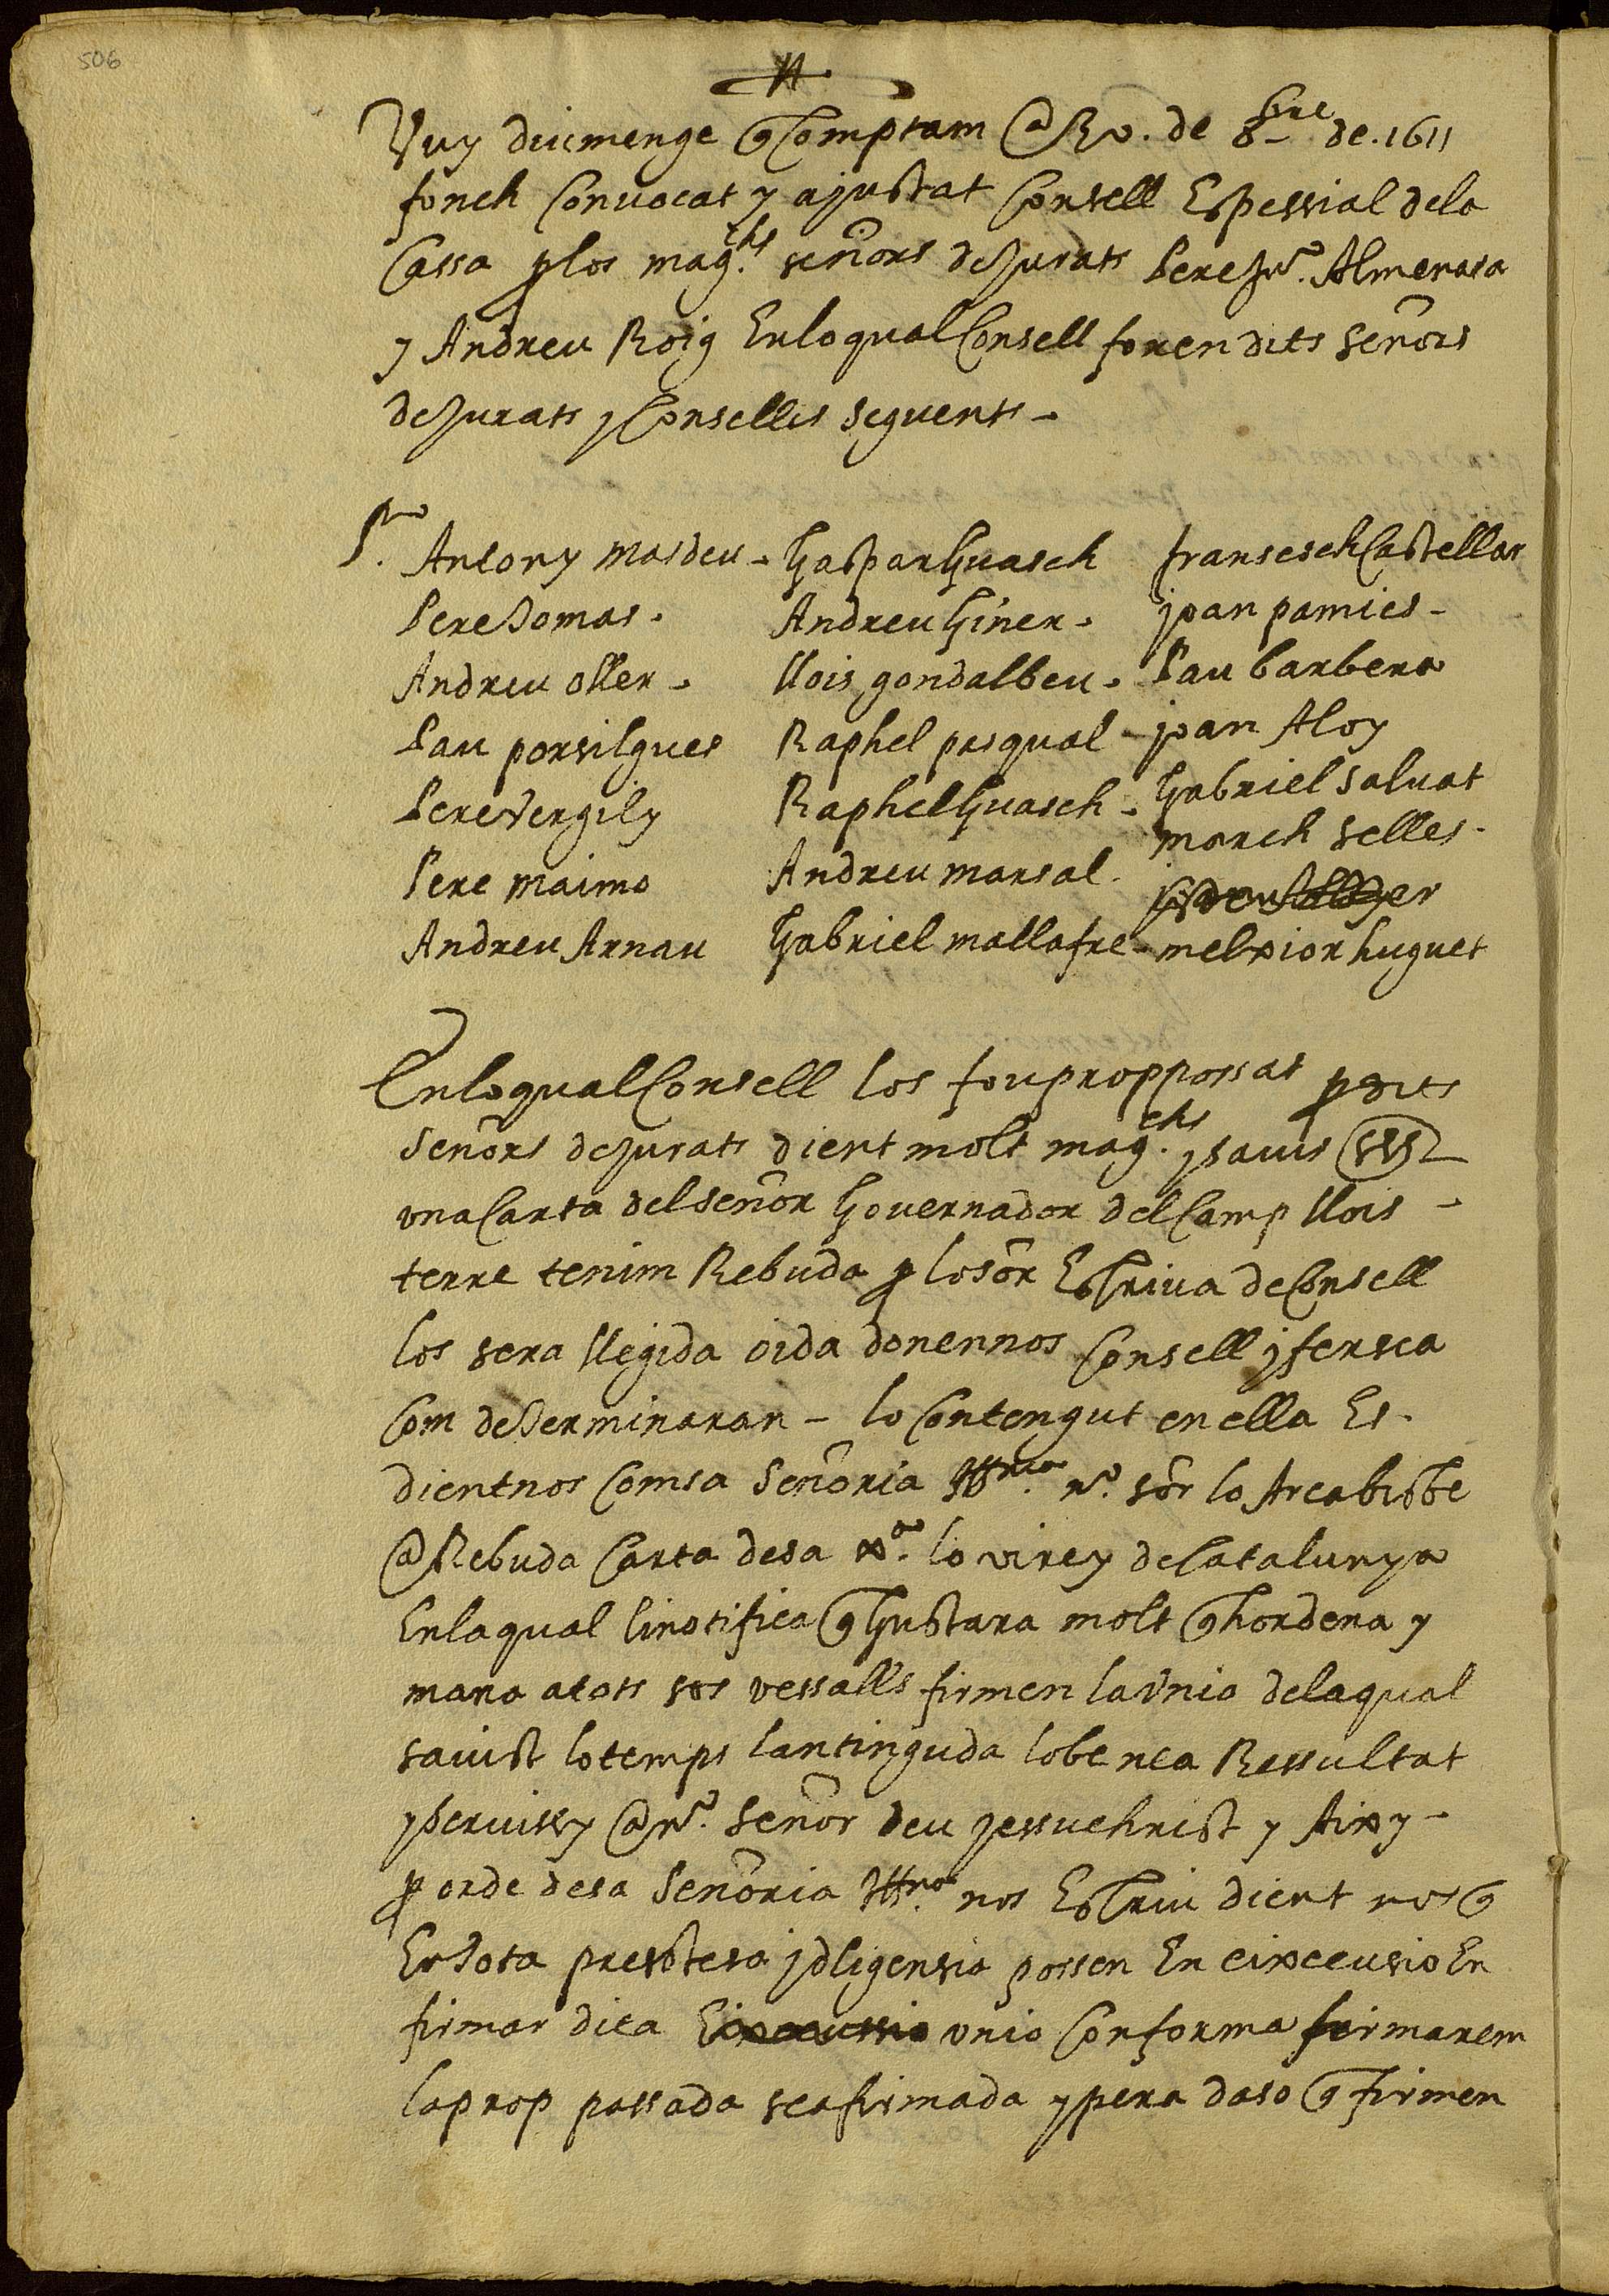 506
Vuy diumenge q Comptam @ Rv. de 8bre de.1611
fonch Convocat y ajustat Consell Espessial dela
Cassa p los mag.chs señors deJurats Pere Jn.º Almenara
y Andreu Roig Enloqual Consell foren dits señors
deJurats y Consellés seguents-
P.º Antony masdeu - Gaspar Guasch fransesch Castellar
Pere Tomas. Andreu Giner. joan pamies-
Andreu oller - llois gondalbeu. Pau barbera
Pau porsilgues Raphel pasqual - joan Aloy
Pere Vergily Raphel Guasch - Gabriel salvat
march selles.
Pere maimo Andreu marsal.
Andreu Arnau Gabriel mallafre - melxior huguet
Enloqual Consell los fou proppossat p dits
señors deJurats dient molt mag.chs y savis
vna Carta del señor Governador del Camp llois -
terre tenim Rebuda p lo sor Estriva de Consell
los sera llegida oida donennos Consell y fersea
Com deTerminaran - lo Contengut en ella Es.
dientnos Com sa señoria Illma. nº. sor lo Arcabisbe
@ Rebuda Carta de sa xa. lo virey de Catalunya
Enlaqual li notifica q Gustara molt q hordena y
mana atots sos vessalls firmen la vnio delaqual
savist lo temps lantinguda lo be nea Ressultat
y servissy @ nº. señor deu jessuchrist y Aixy-
p orde desa señoria Illma. nos Estriu dient nos q
En Tota prestesa y dligensia possen En eixecusio En
firmar dita Eixecussio vnio Conforma firmarem
la prop passada sea firmada y pera daso q firmen